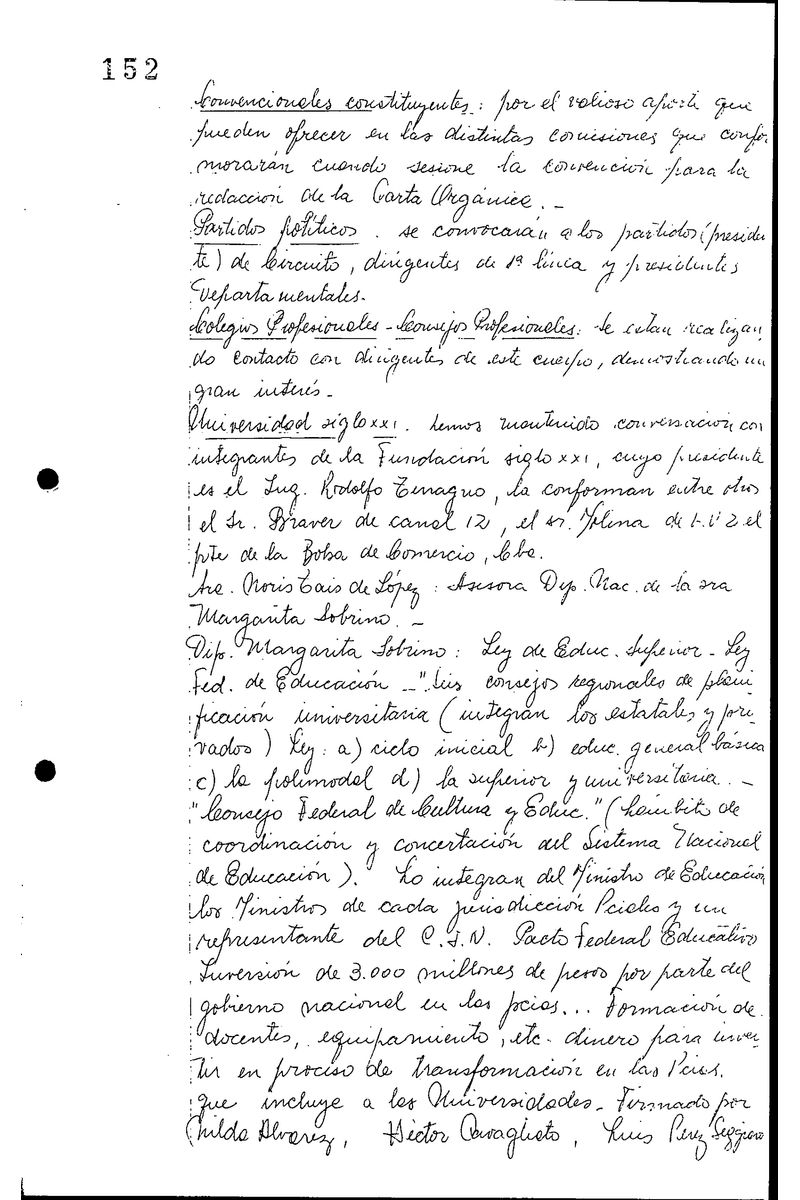 152
Convencionales constituyentes: por el valioso aporte que
pueden ofrecer en las distintas comisiones que confor
morarán cuando sesione la convención para la
redacción de la Carta Orgánica. -
Partidos políticos. se convocarán a los partidos (presiden
te) de Circuito, dirigentes de 1ª línea y presidentes
Departamentales.
Colegios Profesionales - Consejos Profesionales: Se estan realizan
do contacto con dirigentes de este cuerpo, demostrando un
gran interés.
Universidad siglo XXI. hemos mantenido conversación con
integrantes de la Fundación siglo XXI, cuyo presidente
es el Ing. Rodolfo, la conforman entre otros
el Sr. Braver de canal 12, el sr. Molina de 2 el
pte de la Bolsa de Comercio, Cba.
Noris Cais de López: Asesora Dip. Nac. de la sra
Margarita Sobrino. -
Dip. Margarita Sobrino: Ley de Educ. Superior - Ley
Fed. de Educación - "Seis consejos regionales de plani
ficación universitaria (integran los estatales y pri
vados) Ley: a) ciclo inicial b) educ. general básica
c) la polimodal d) la superior y universitaria. -
"Consejo Federal de Cultura y Educ." ( ámbito de
coordinación y concertación del Sistema Nacional
de Educación). Lo integran del Ministro de Educación
los Ministros de cada jurisdicción Pciales y un
representante del C.I.N. Pacto Federal Educativo
Inversión de 3.000 millones de pesos por parte del
gobierno nacional en las pcias... Formación de
docentes, equipamiento, etc. dinero para inver
tir en proceso de transformación en las Pcias.
que incluye a las Universidades. Firmado por
Hilda Alvarez, Héctor Cavagliato, Luis Perez